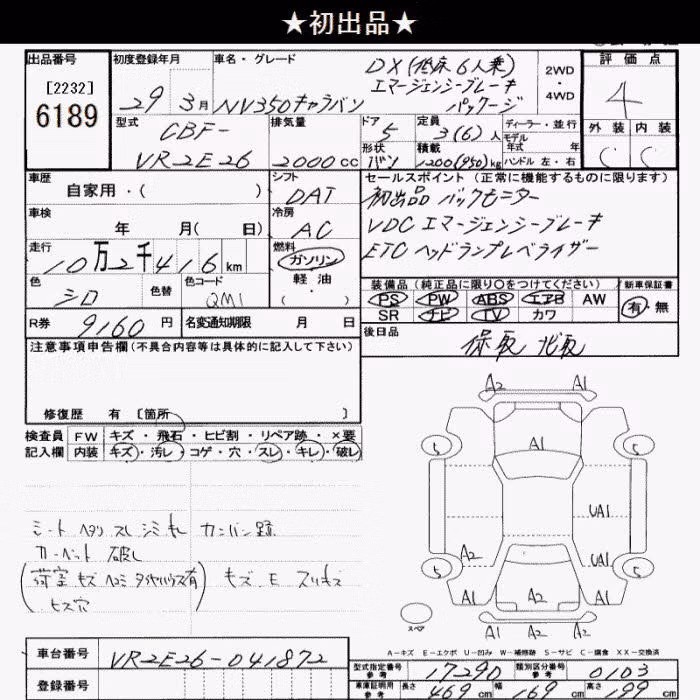 ★初出品★
出品番号
[2232]
6189
初度登録年月
29年3月
車名・グレード
NV350キャラバン
DX(低床6人乗)
エマージェンシーブレーキ
パッケージ
2WD
4WD
評価点
4
外装 内装
C C
型式
CBF-
VR2E26
排気量
2000cc
ドア
5
形状
バン
定員
3(6)人
積載
1200(950)kg
ディーラー・並行
モデル
年式 年
ハンドル 左・右
車歴
自家用・( )
シフト
DAT
セールスポイント(正常に機能するものに限ります)
初出品 バックモニター
VDC エマージェンシーブレーキ
ETC ヘッドランプレベライザー
車検
年 月( 日)
冷房
AC
走行
10万2千416km
燃料
ガソリン
軽油
( ・ )
色
シロ
色替
色コード
QM1
装備品(純正品に限り○をつけてください)
PS PW ABS エアB AW
SR ナビ TV カワ
新車保証書
有・無
R券
9160円
名変通知期限 月 日
後日品
保取 記取
注意事項申告欄(不具合内容等は具体的に記入して下さい)
修復歴 有 [箇所 ]
検査員
記入欄
FW キズ・飛石・ヒビ割・リペア跡・×要
内装 キズ・汚レ・コゲ・穴・スレ・キレ・破レ
シート ヘタリ スレ シミ キレ カンバン跡
カーペット 破レ
(荷室 キズ ヘコミ タイヤハウス有) キズ E スリキズ
ビス穴
A2 A1
5 A1 5
UA1
A2 UA1
5 5
A1 A2 A1
A2 A2 A1
スペア
A-キズ E-エクボ U-凹み W-補修跡 S-サビ C-腐食 XX-交換済
車台番号
VR2E26-041872
登録番号
型式指定番号
参考
17290
類別区分番号
参考
0103
車庫証明用
参考
長さ 469cm 幅 169cm 高さ 199cm